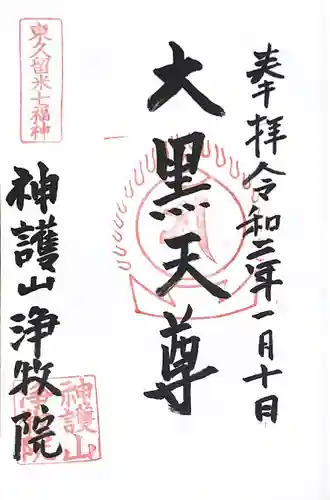 奉拝令和三年一月十日
大黒天尊
東久留米七福神
神護山浄牧院
神護山
浄牧院